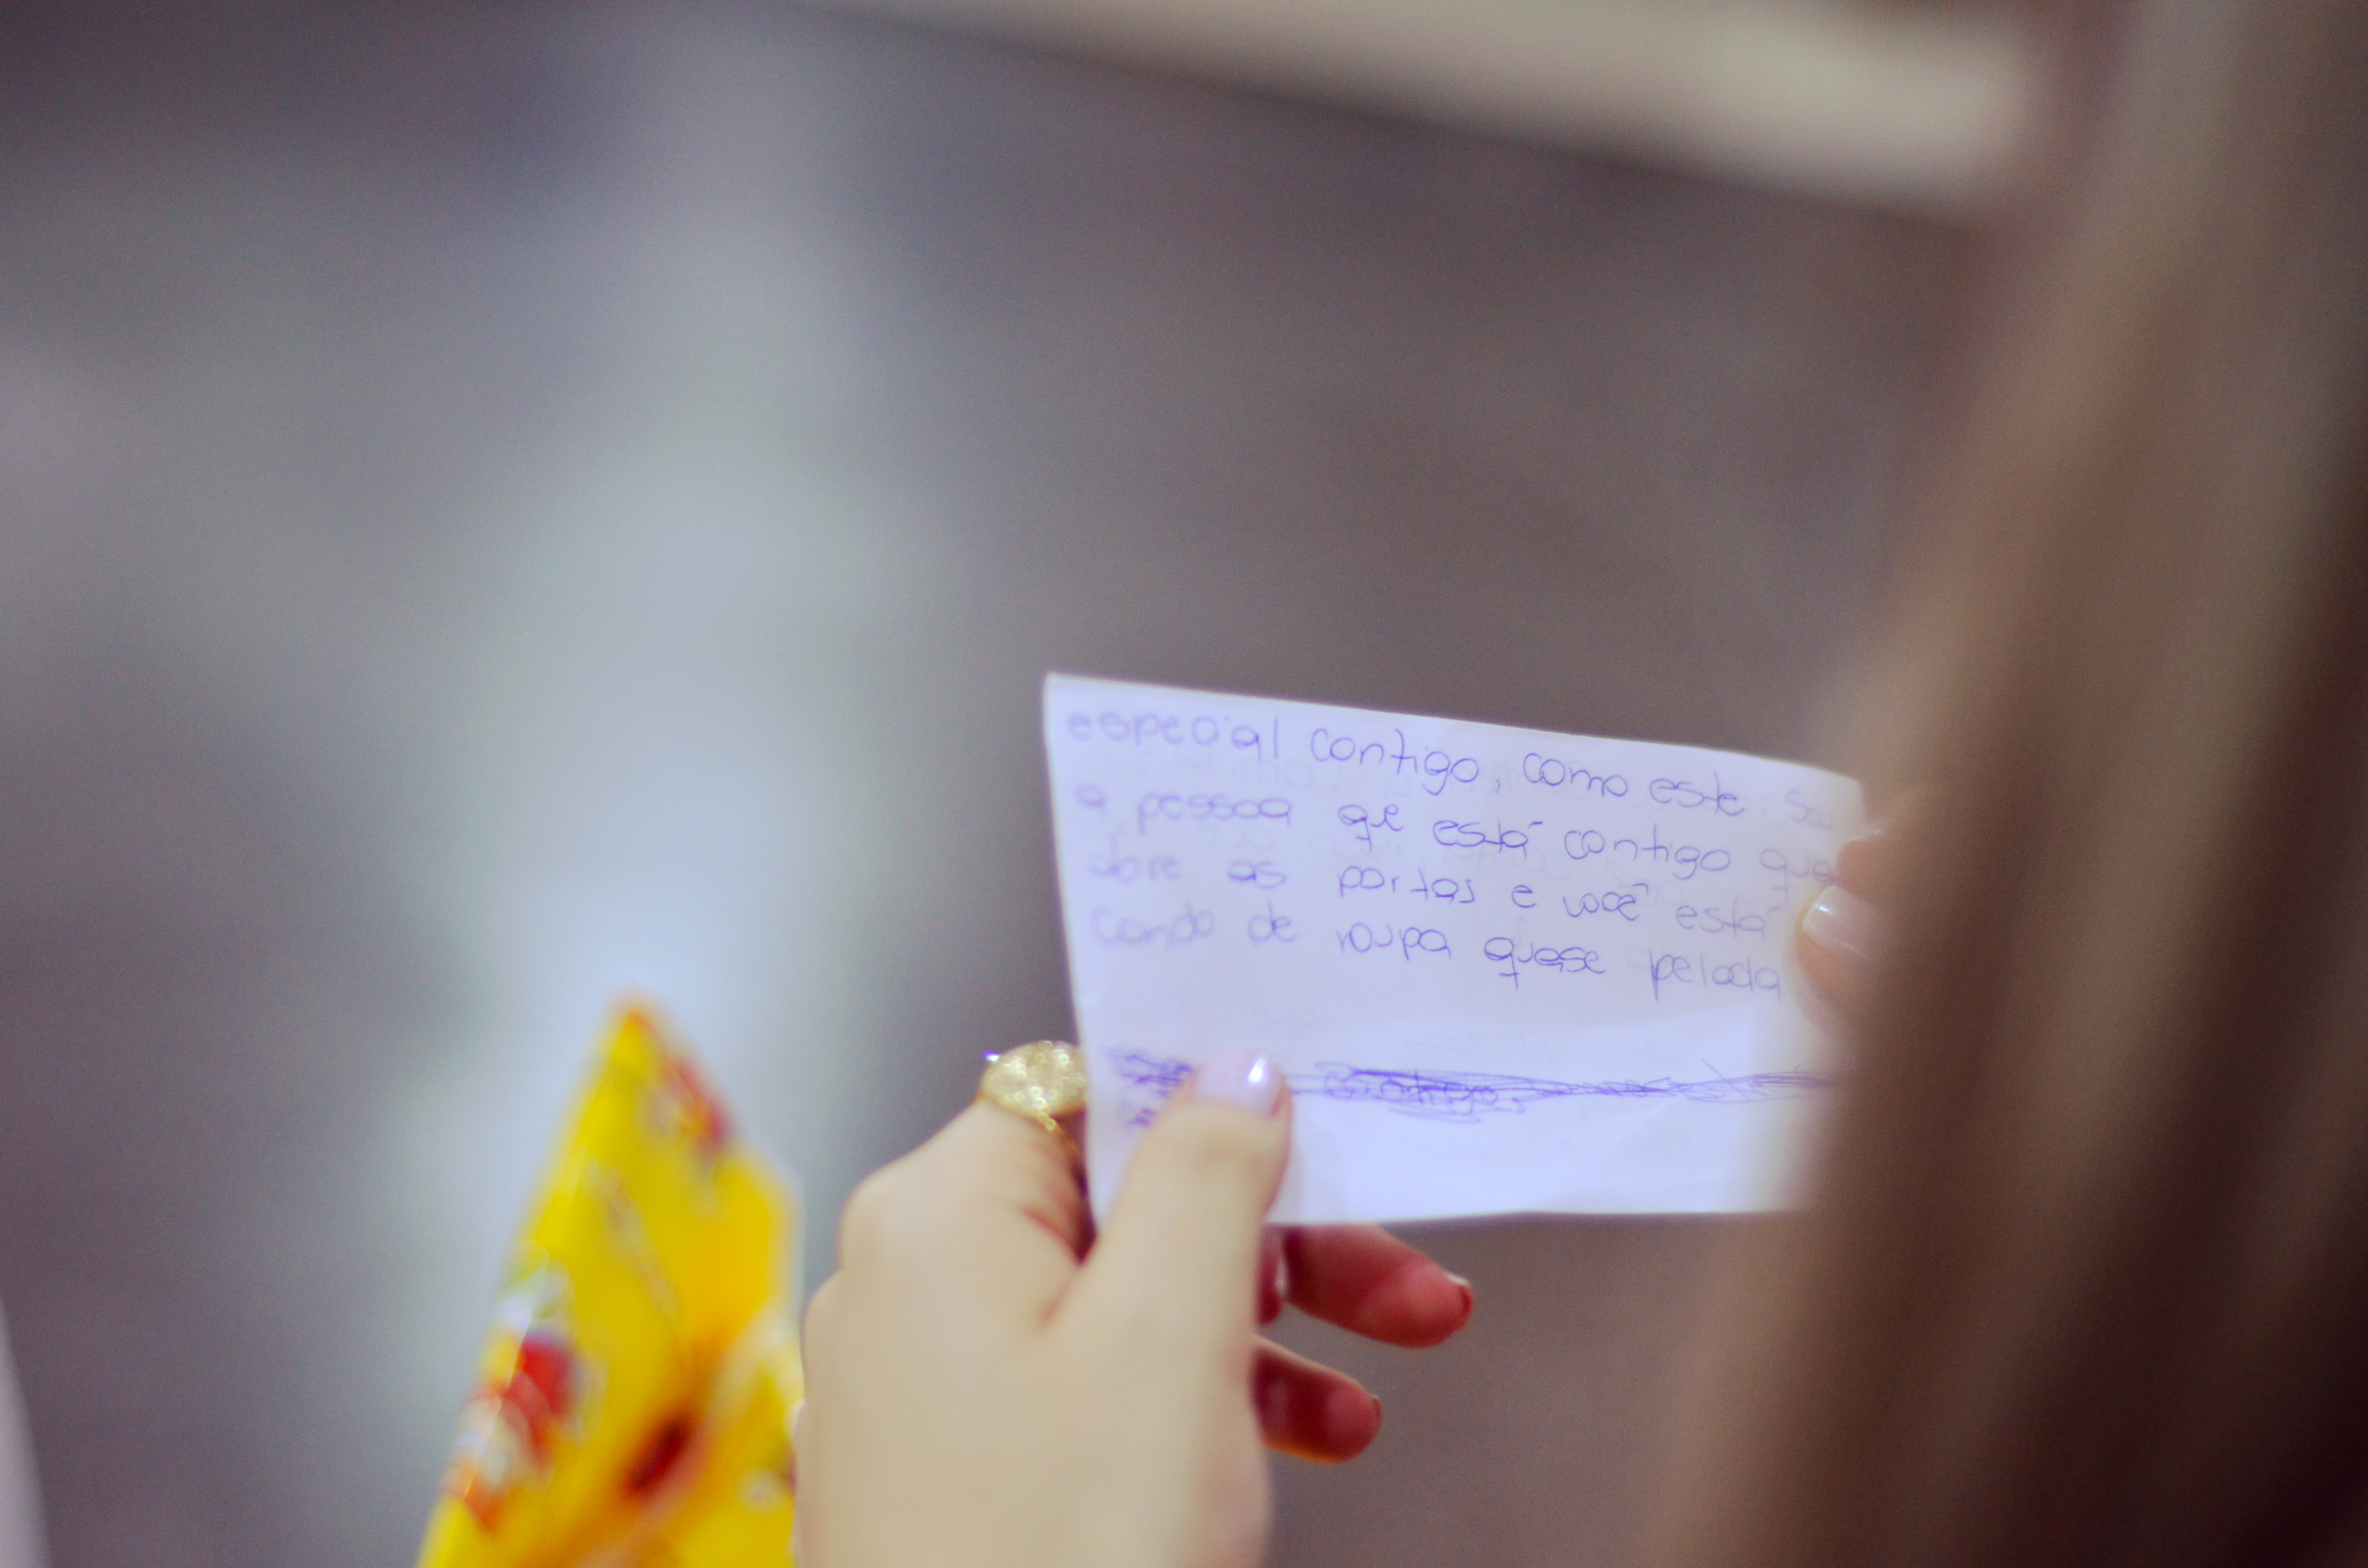 especial contigo, como este. Sou
a pessoa que está contigo
abre as portas e você está
cando de roupa quase pelada
contigo,